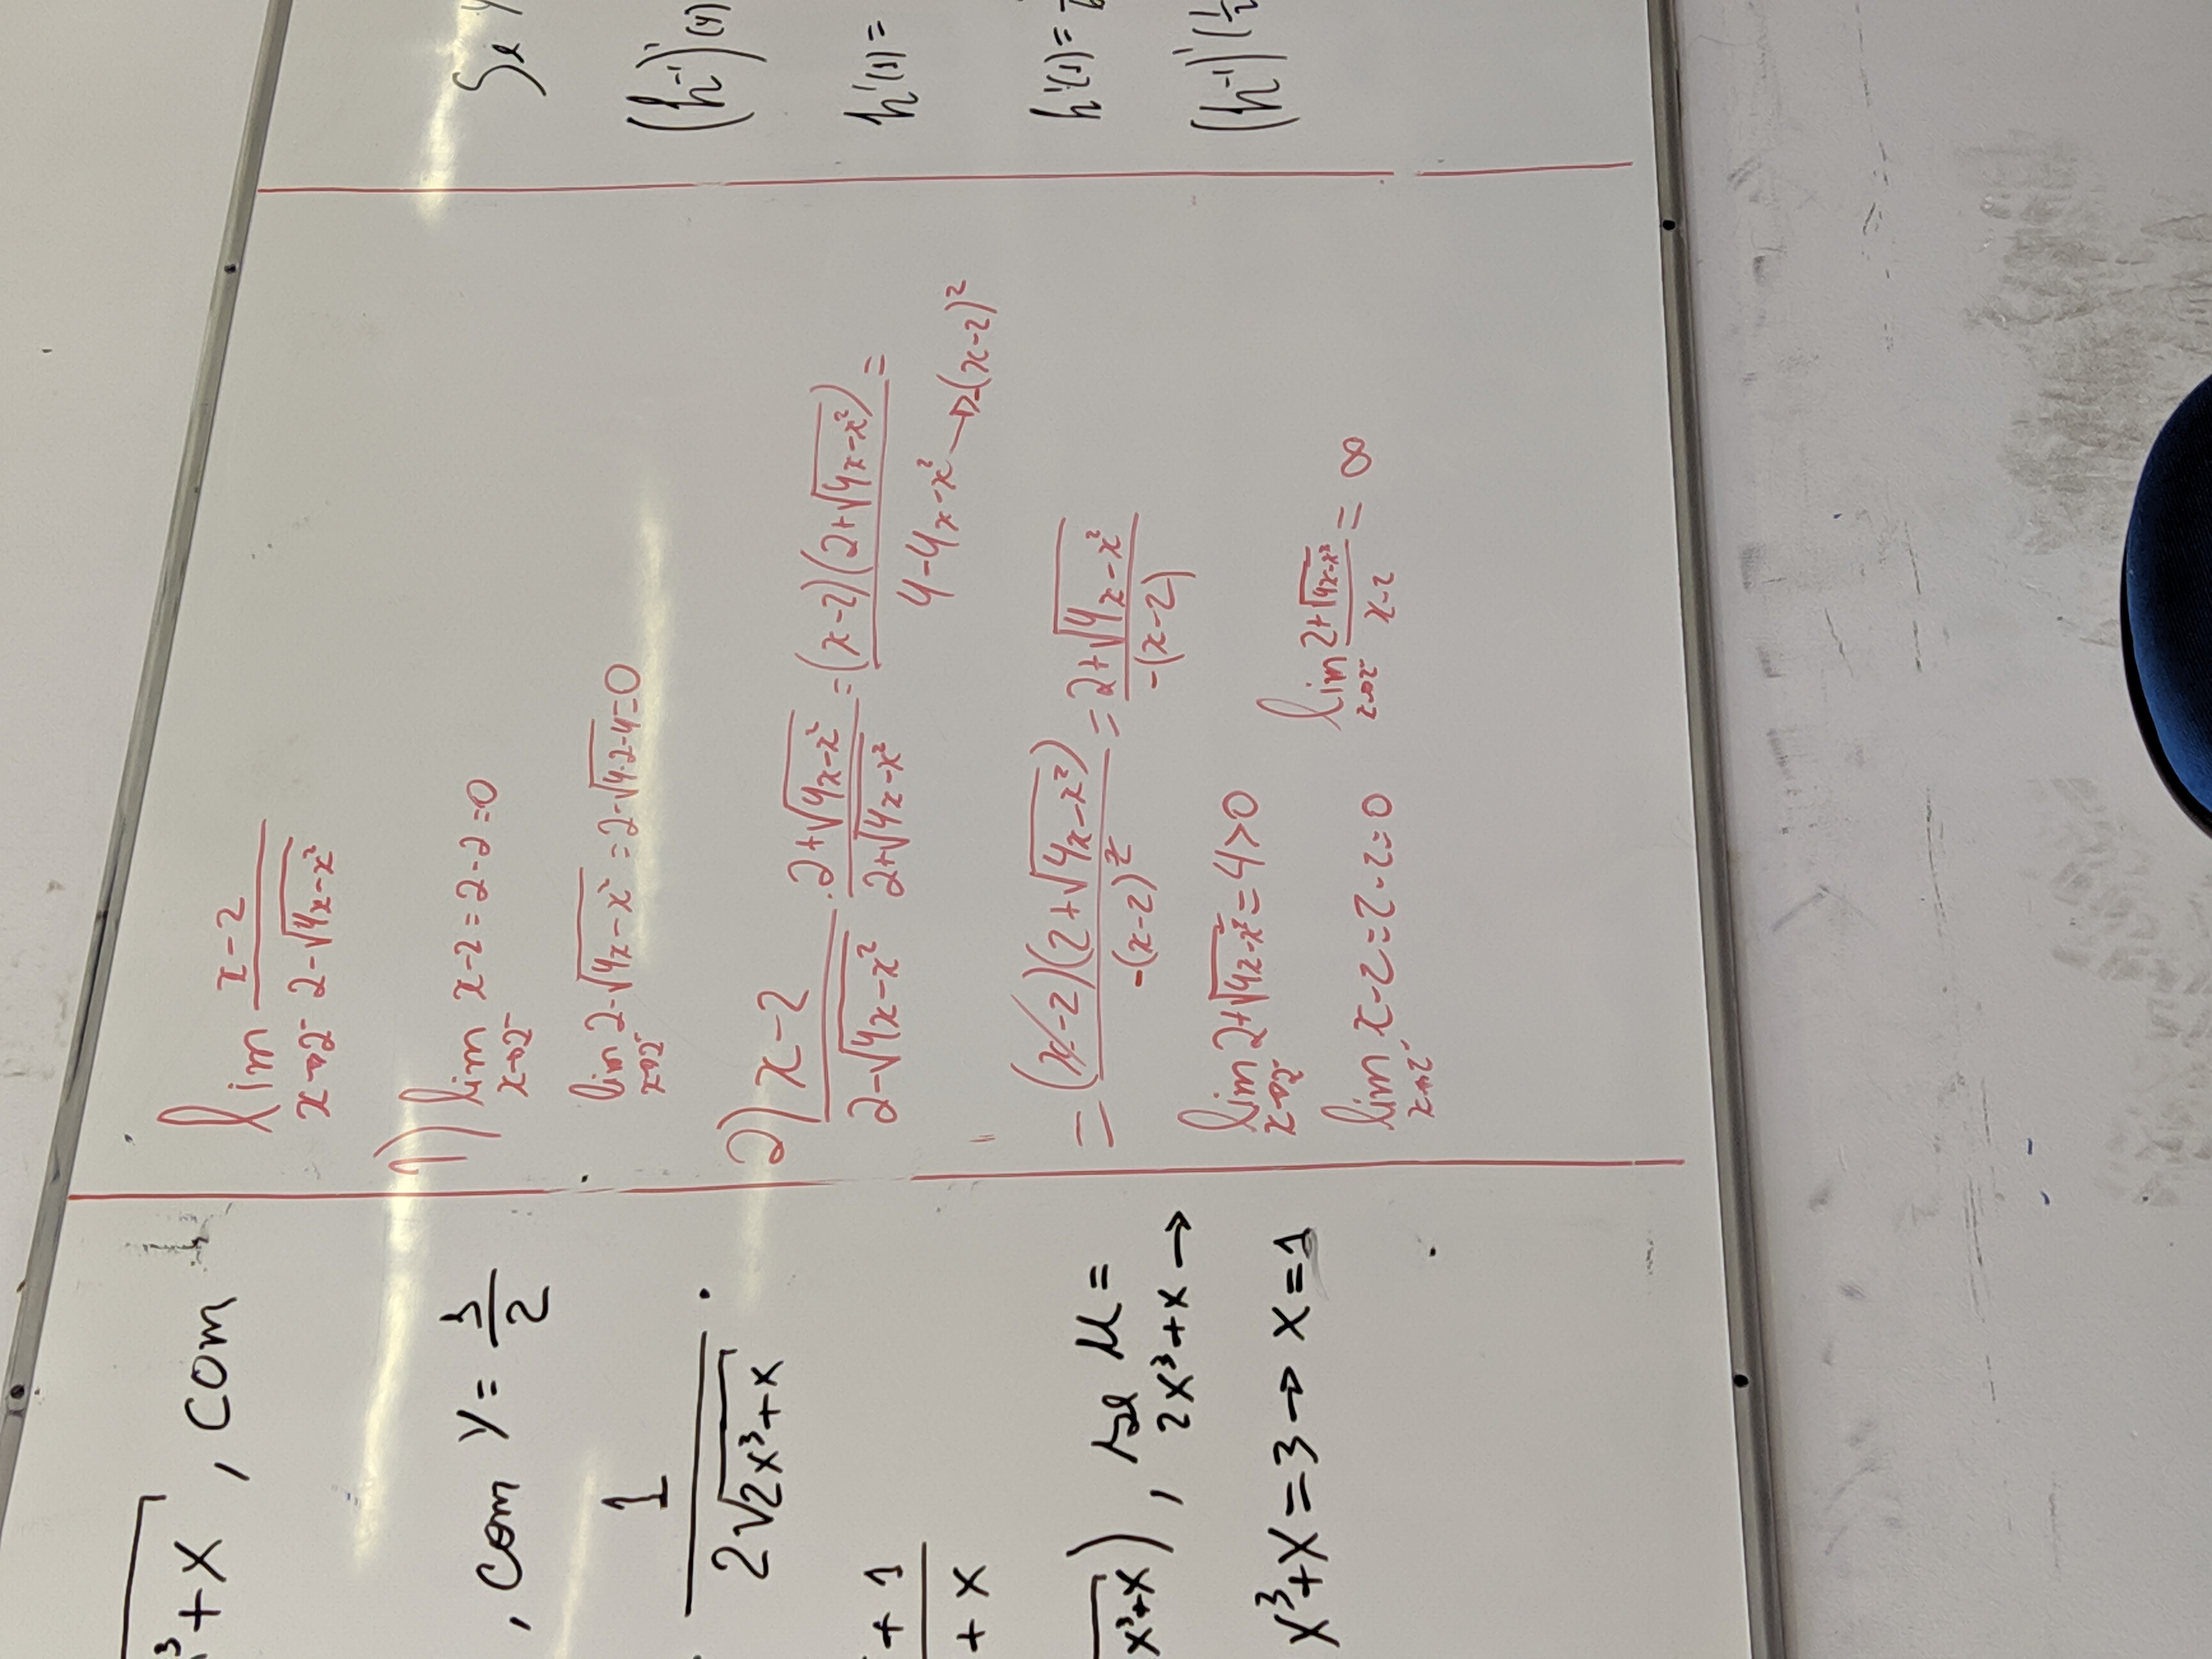 ³+x , com
, com y = 3/2
1/(2√(2x³+x)) .
+ 1
+ x
x³+x) , se u =
2x³+x →
x³+x = 3 → x = 1
lim x→2⁻ (x-2)/(2-√(4x-x²))
1) lim x→2⁻ x-2 = 2-2 = 0
lim x→2⁻ 2-√(4x-x²) = 2-√(4·2-4) = 0
2) (x-2)/(2-√(4x-x²)) . (2+√(4x-x²))/(2+√(4x-x²)) = (x-2)(2+√(4x-x²))/(4-4x-x²) =
→ -(x-2)²
= (x-2)(2+√(4x-x²))/(-(x-2)²) = (2+√(4x-x²))/(-(x-2))
lim x→2⁻ 2+√(4x-x²) = 4>0
lim x→2⁻ x-2 = 2-2 = 0
lim x→2⁻ (2+√(4x-x²))/(x-2) = ∞
Se y
(h⁻¹)'(y)
h'(1) =
h'(1) =
(h⁻¹)'(1/2